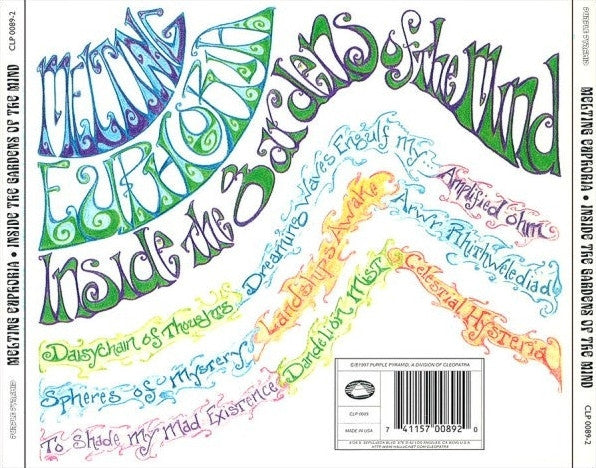 CLP 0089-2
MELTING EUPHORIA • INSIDE THE GARDENS OF THE MIND
PURPLE PYRAMID
MELTING
EUPHORIA
Inside the Gardens of the Mind
Daisychain of Thoughts
Spheres of Mystery
To Shade my Mad Existence
Dreaming Waves Engulf my...
Landships Awake
Dandelion Mist
Amplified Ohm
Arwr Rhithwelediad
Celestrial Hysteria
©/℗1997 PURPLE PYRAMID, A DIVISION OF CLEOPATRA
CLP 0089
MADE IN USA
7 41157 00892 0
LOS ANGELES, CA 90045 U.S.A.
HTTP://WWW.HALLUCINET.COM/CLEOPATRA
PURPLE PYRAMID
MELTING EUPHORIA • INSIDE THE GARDENS OF THE MIND
CLP 0089-2